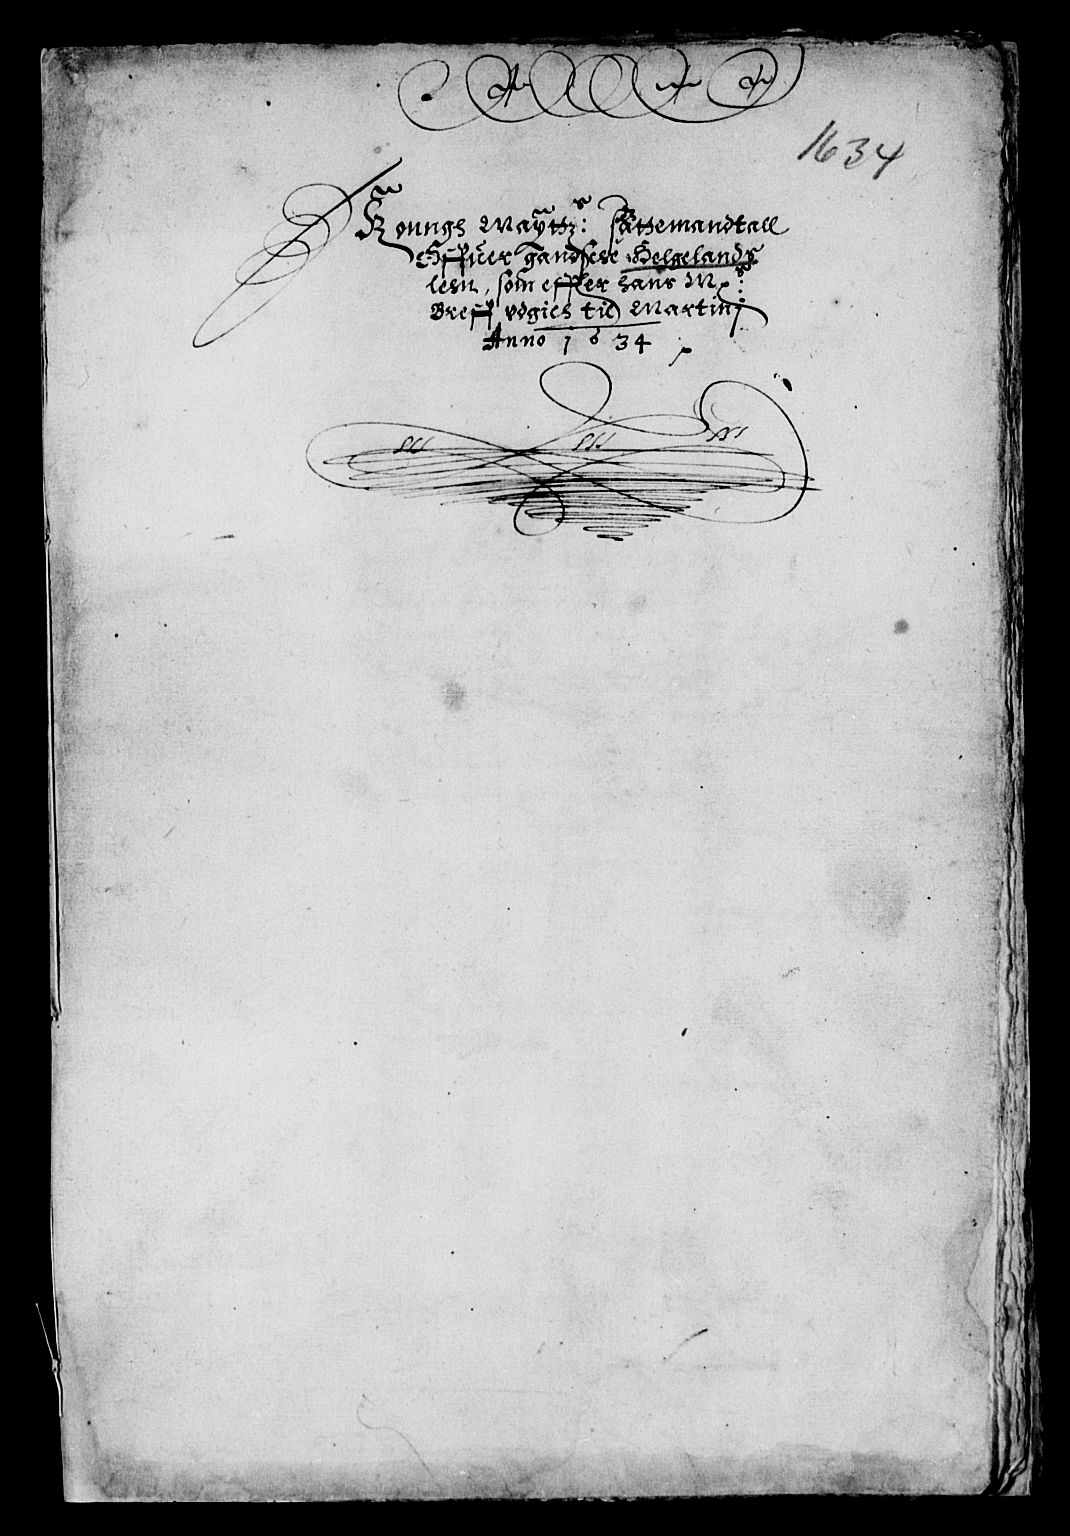 1634
Konngs Maÿttz: skattemandtall
Offuer gandsche Helgelands
lehn, som effter hans M:
Breff ydgies til Martinj
Anno 1634